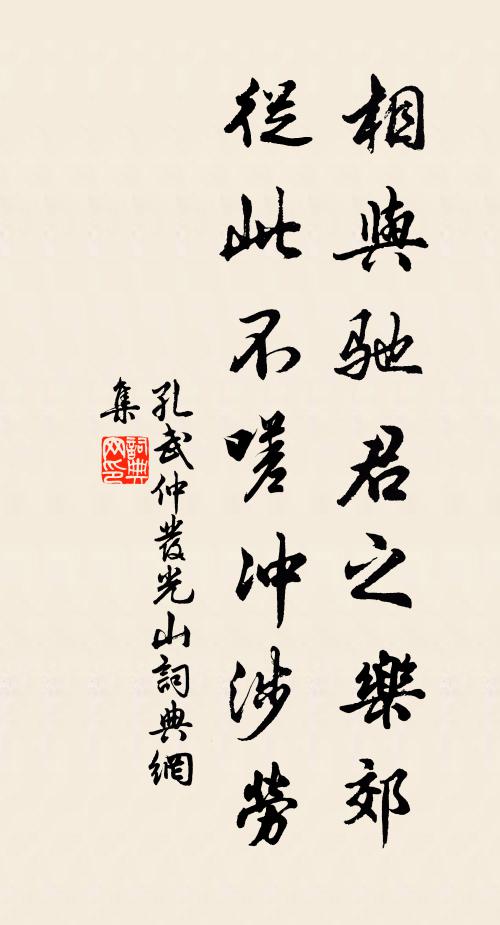 相與馳君之樂郊
從此不嗟冲涉勞
孔武仲發光山詞典網
集
詞典
网印